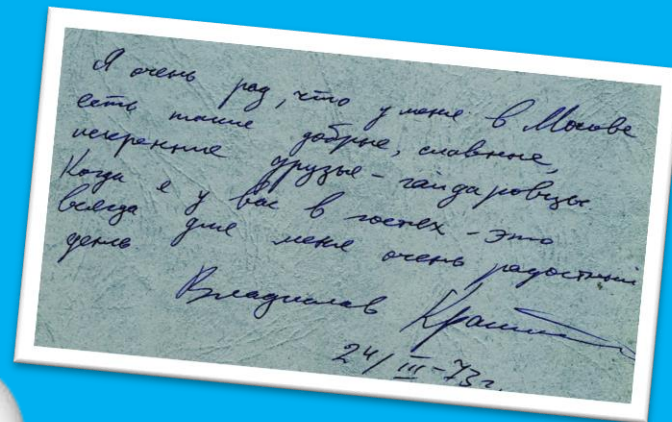 Я очень рад, что у меня в Москве
есть такие добрые, славные,
искренние друзья - гайдаровцы
Когда я у вас в гостях - это
всегда для меня очень радостный
день
Владислав
24/III-73г.